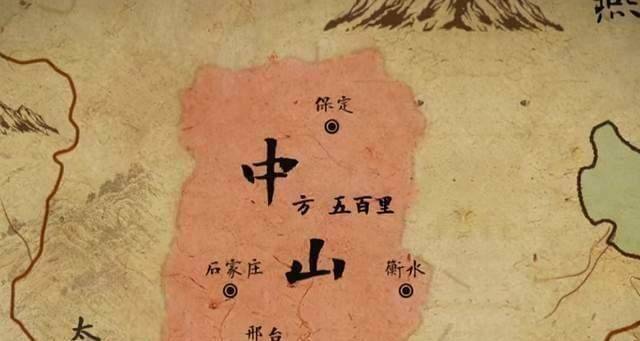 燕
保定
中
方 五百里
山
石家庄
衡水
邢台
太